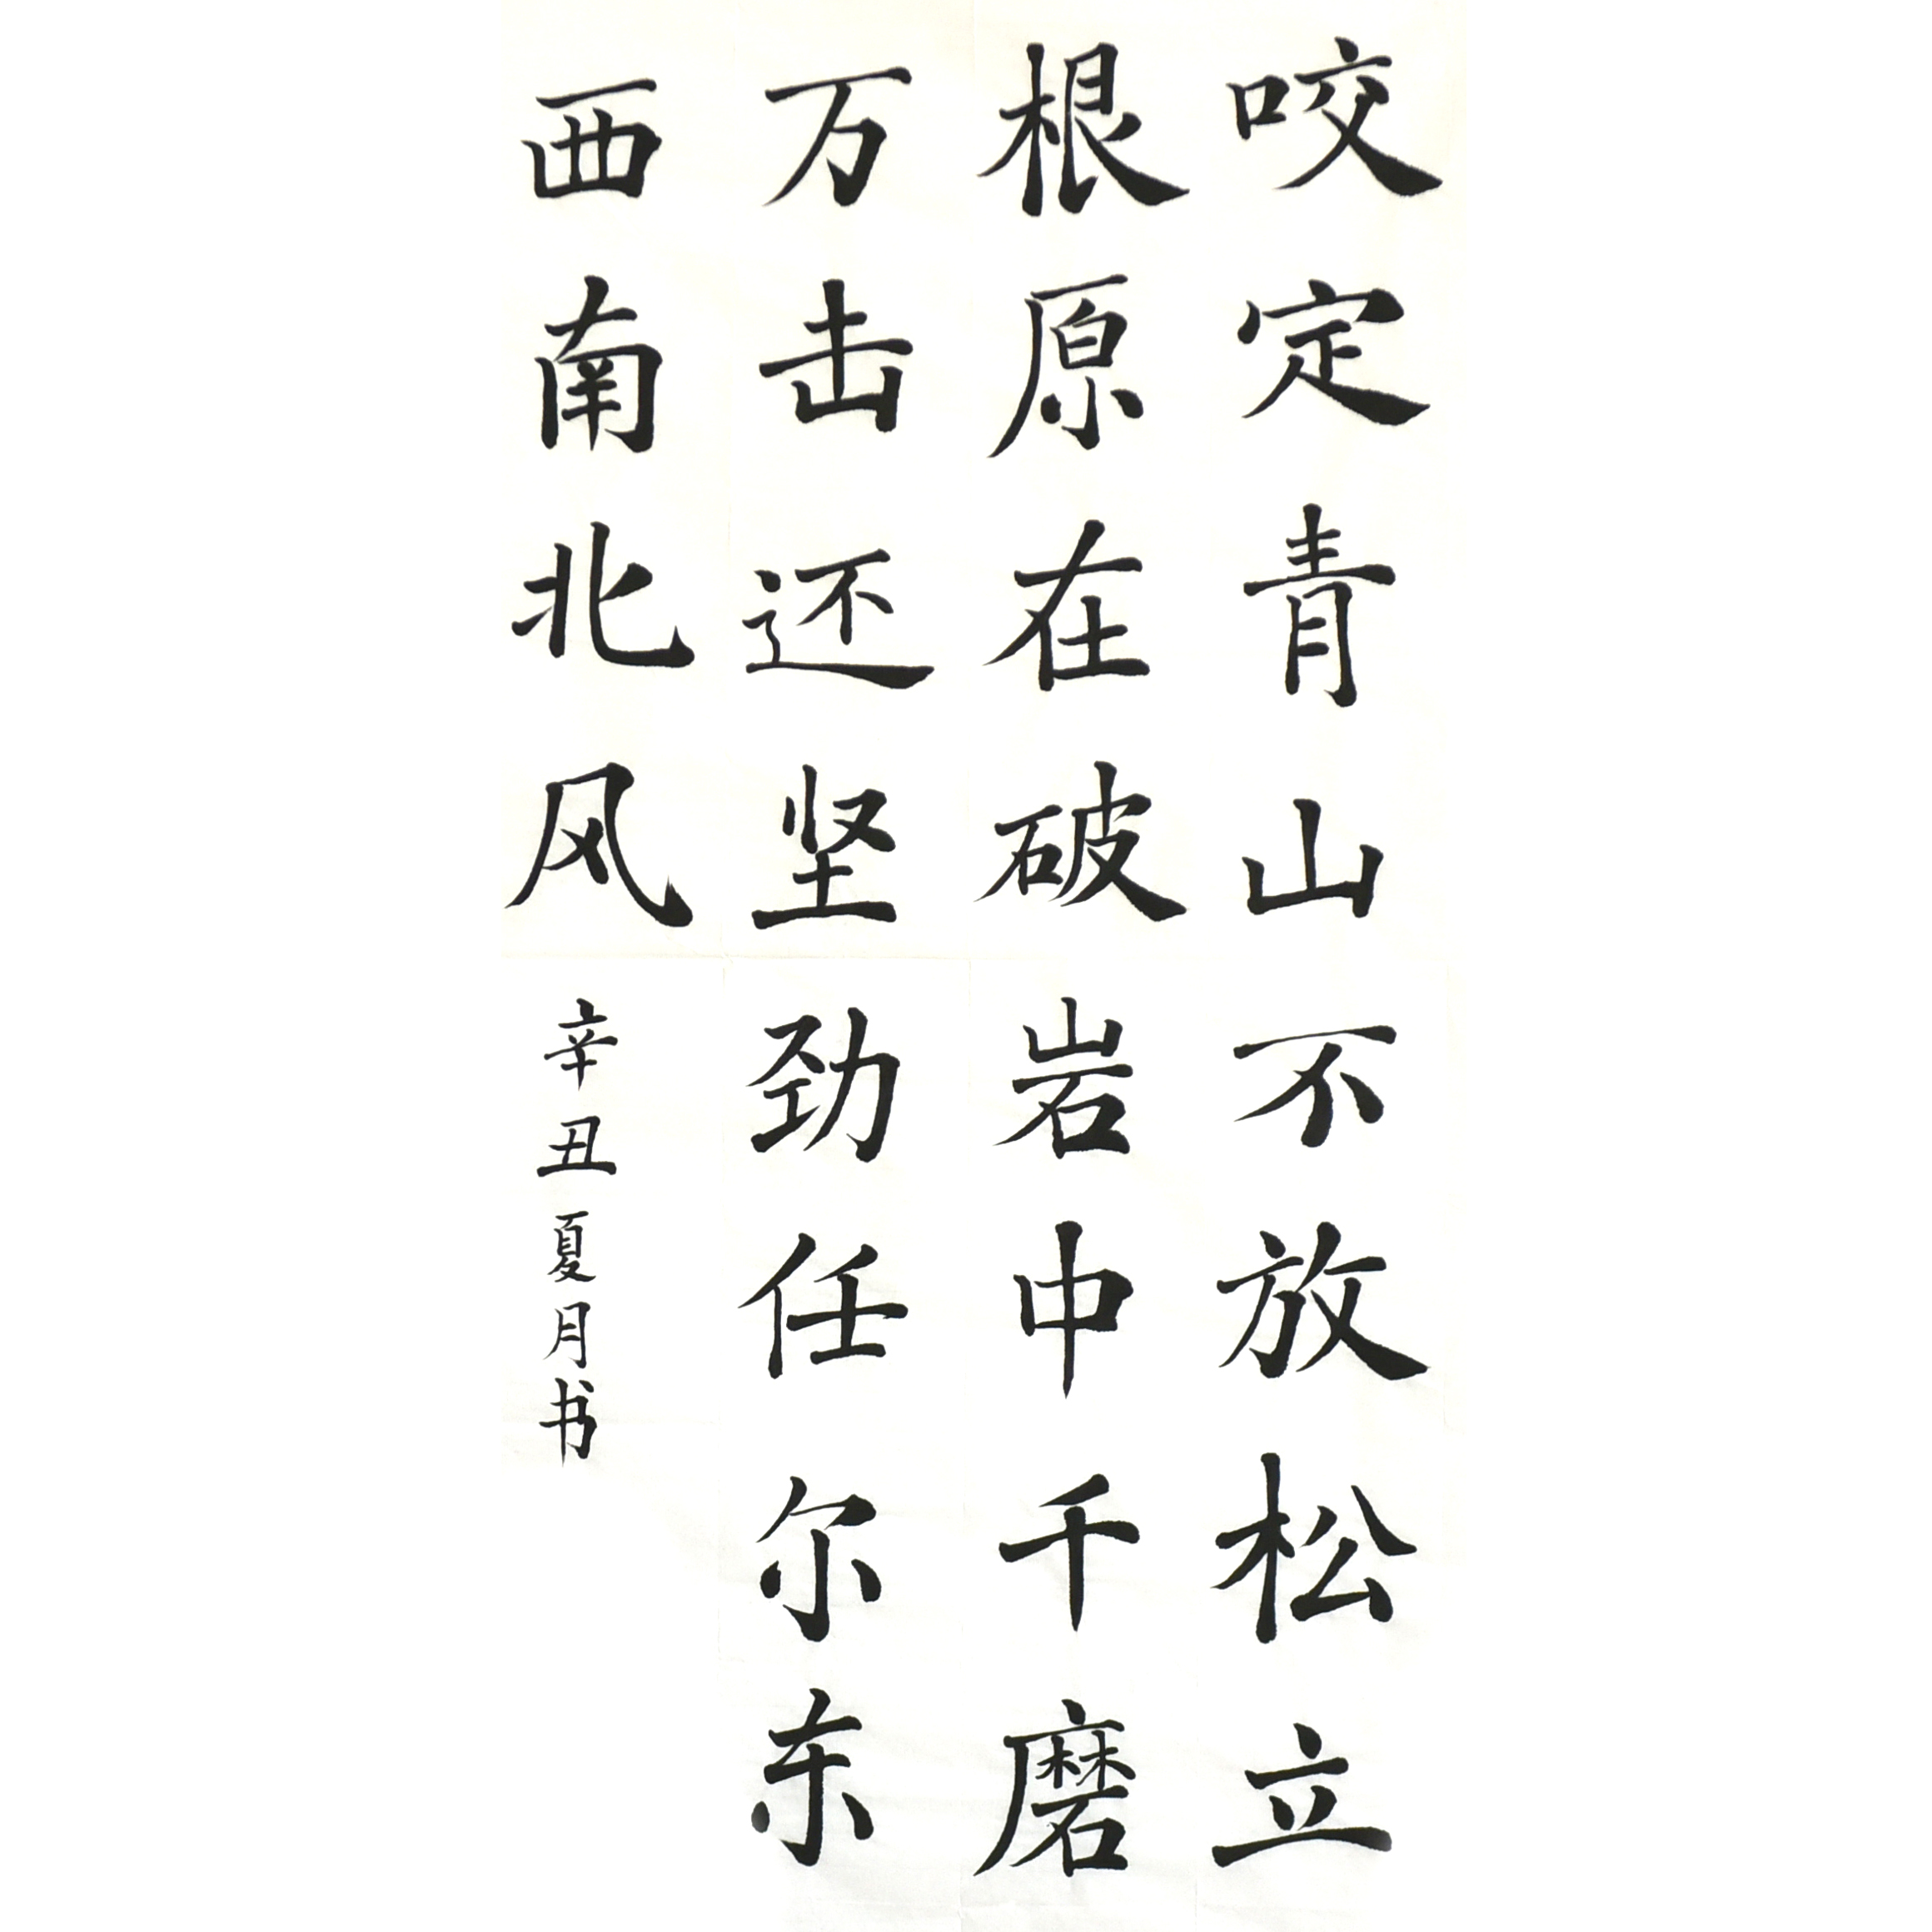 咬定青山不放松立
根原在破岩中千磨
万击还坚劲任尔东
西南北风
辛丑夏月书